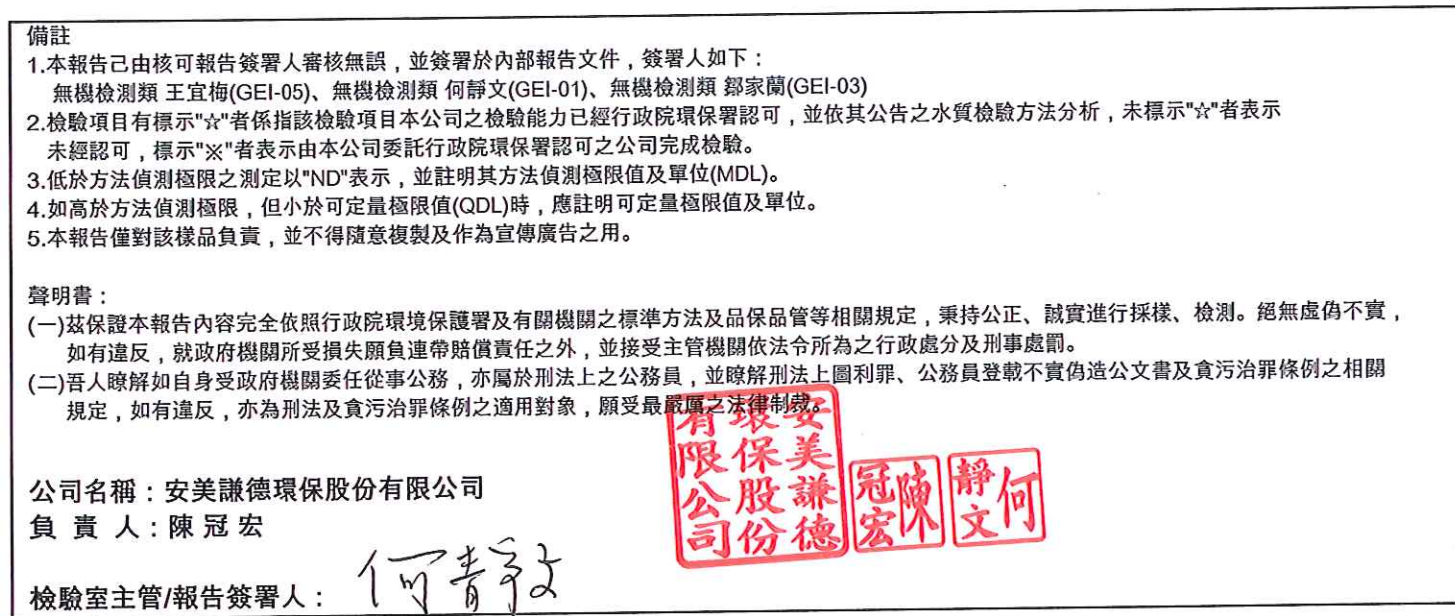 備註
1.本報告己由核可報告簽署人審核無誤，並簽署於內部報告文件，簽署人如下：
無機檢測類 王宜梅(GEI-05)、無機檢測類 何靜文(GEI-01)、無機檢測類 鄒家蘭(GEI-03)
2.檢驗項目有標示"☆"者係指該檢驗項目本公司之檢驗能力已經行政院環保署認可，並依其公告之水質檢驗方法分析，未標示"☆"者表示
未經認可，標示"※"者表示由本公司委託行政院環保署認可之公司完成檢驗。
3.低於方法偵測極限之測定以"ND"表示，並註明其方法偵測極限值及單位(MDL)。
4.如高於方法偵測極限，但小於可定量極限值(QDL)時，應註明可定量極限值及單位。
5.本報告僅對該樣品負責，並不得隨意複製及作為宣傳廣告之用。
聲明書：
(一)茲保證本報告內容完全依照行政院環境保護署及有關機關之標準方法及品保品管等相關規定，秉持公正、誠實進行採樣、檢測。絕無虛偽不實，
如有違反，就政府機關所受損失願負連帶賠償責任之外，並接受主管機關依法令所為之行政處分及刑事處罰。
(二)吾人瞭解如自身受政府機關委任從事公務，亦屬於刑法上之公務員，並瞭解刑法上圖利罪、公務員登載不實偽造公文書及貪污治罪條例之相關
規定，如有違反，亦為刑法及貪污治罪條例之適用對象，願受最嚴厲之法律制裁。
安美謙德
環保股份
有限公司
陳
冠宏
何
靜文
公司名稱：安美謙德環保股份有限公司
負 責 人：陳 冠 宏
檢驗室主管/報告簽署人： 何靜文